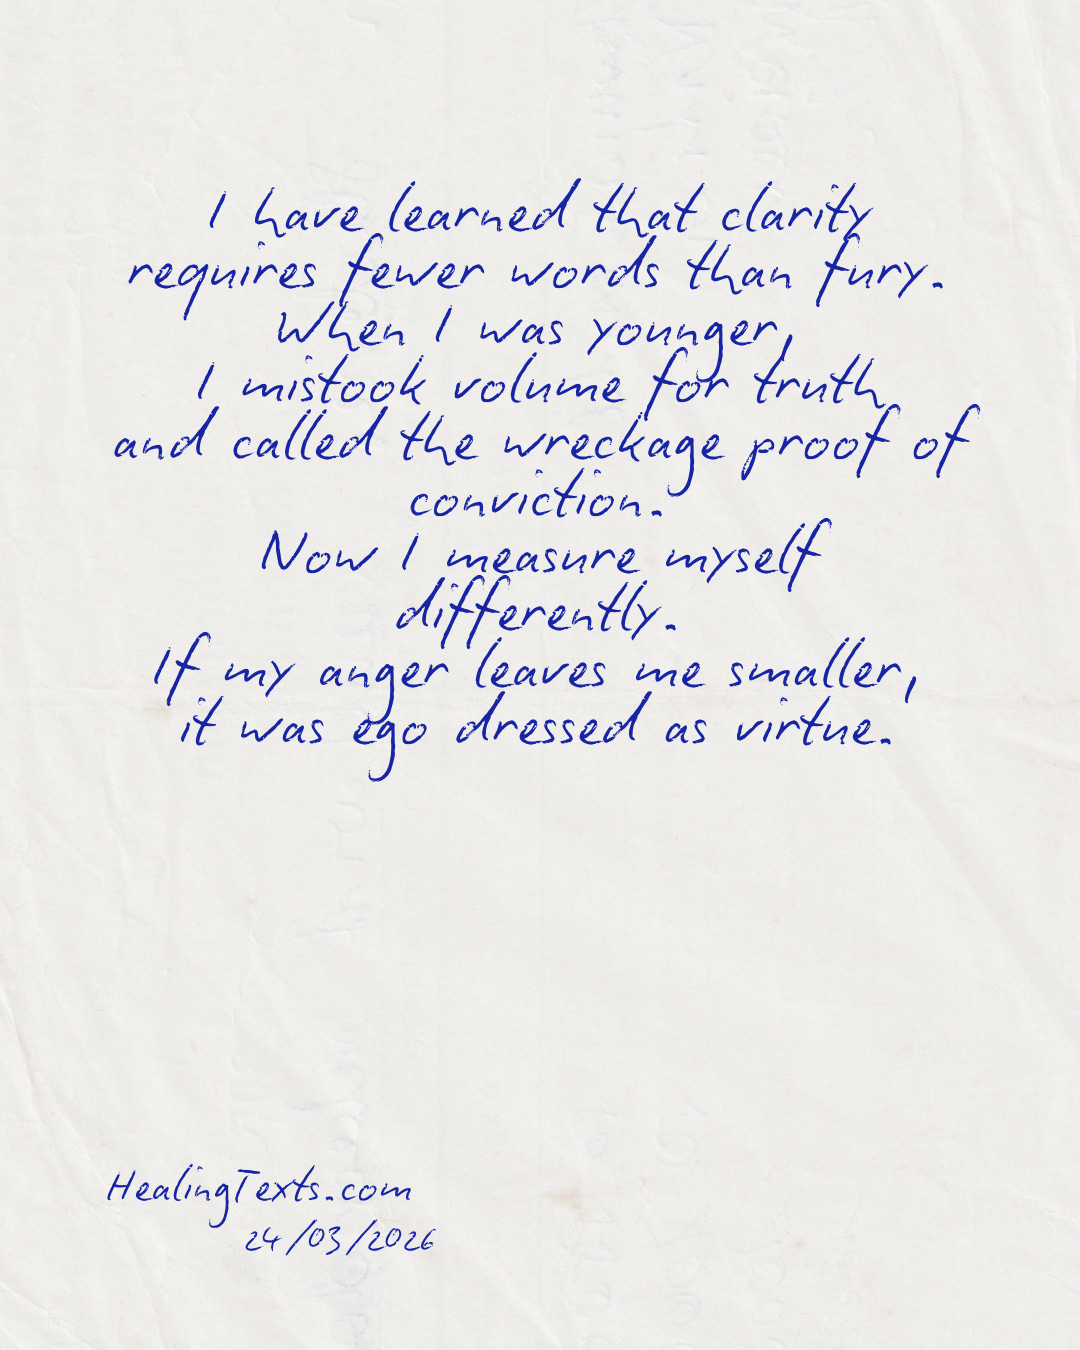 I have learned that clarity
requires fewer words than fury.
When I was younger,
I mistook volume for truth
and called the wreckage proof of
conviction.
Now I measure myself
differently.
If my anger leaves me smaller,
it was ego dressed as virtue.
HealingTexts.com
24/03/2026